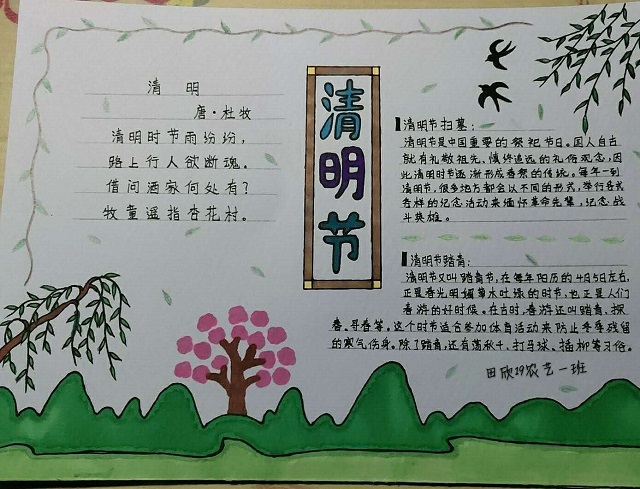 清 明
唐·杜牧
清明时节雨纷纷,
路上行人欲断魂。
借问酒家何处有?
牧童遥指杏花村。
清明节
清明节扫墓:
清明节是中国重要的祭祀节日。国人自古
就有礼敬祖先、慎终追远的礼俗观念,因
此清明时节逐渐形成香祭的传统。每年一到
清明节,很多地方都会以不同的形式,举行各式
各样的纪念活动来缅怀革命先辈,纪念战
斗英雄。
清明节踏青:
清明节又叫踏青节,在每年阳历的4月5日左右,
正是春光明媚草木吐绿的时节,也正是人们
春游的好时候。在古时,春游还叫踏青、探
春、寻春等。这个时节适合参加体育活动来防止冬季残留
的寒气伤身。除了踏青,还有荡秋千、打马球、插柳等习俗。
田欣19农艺一班